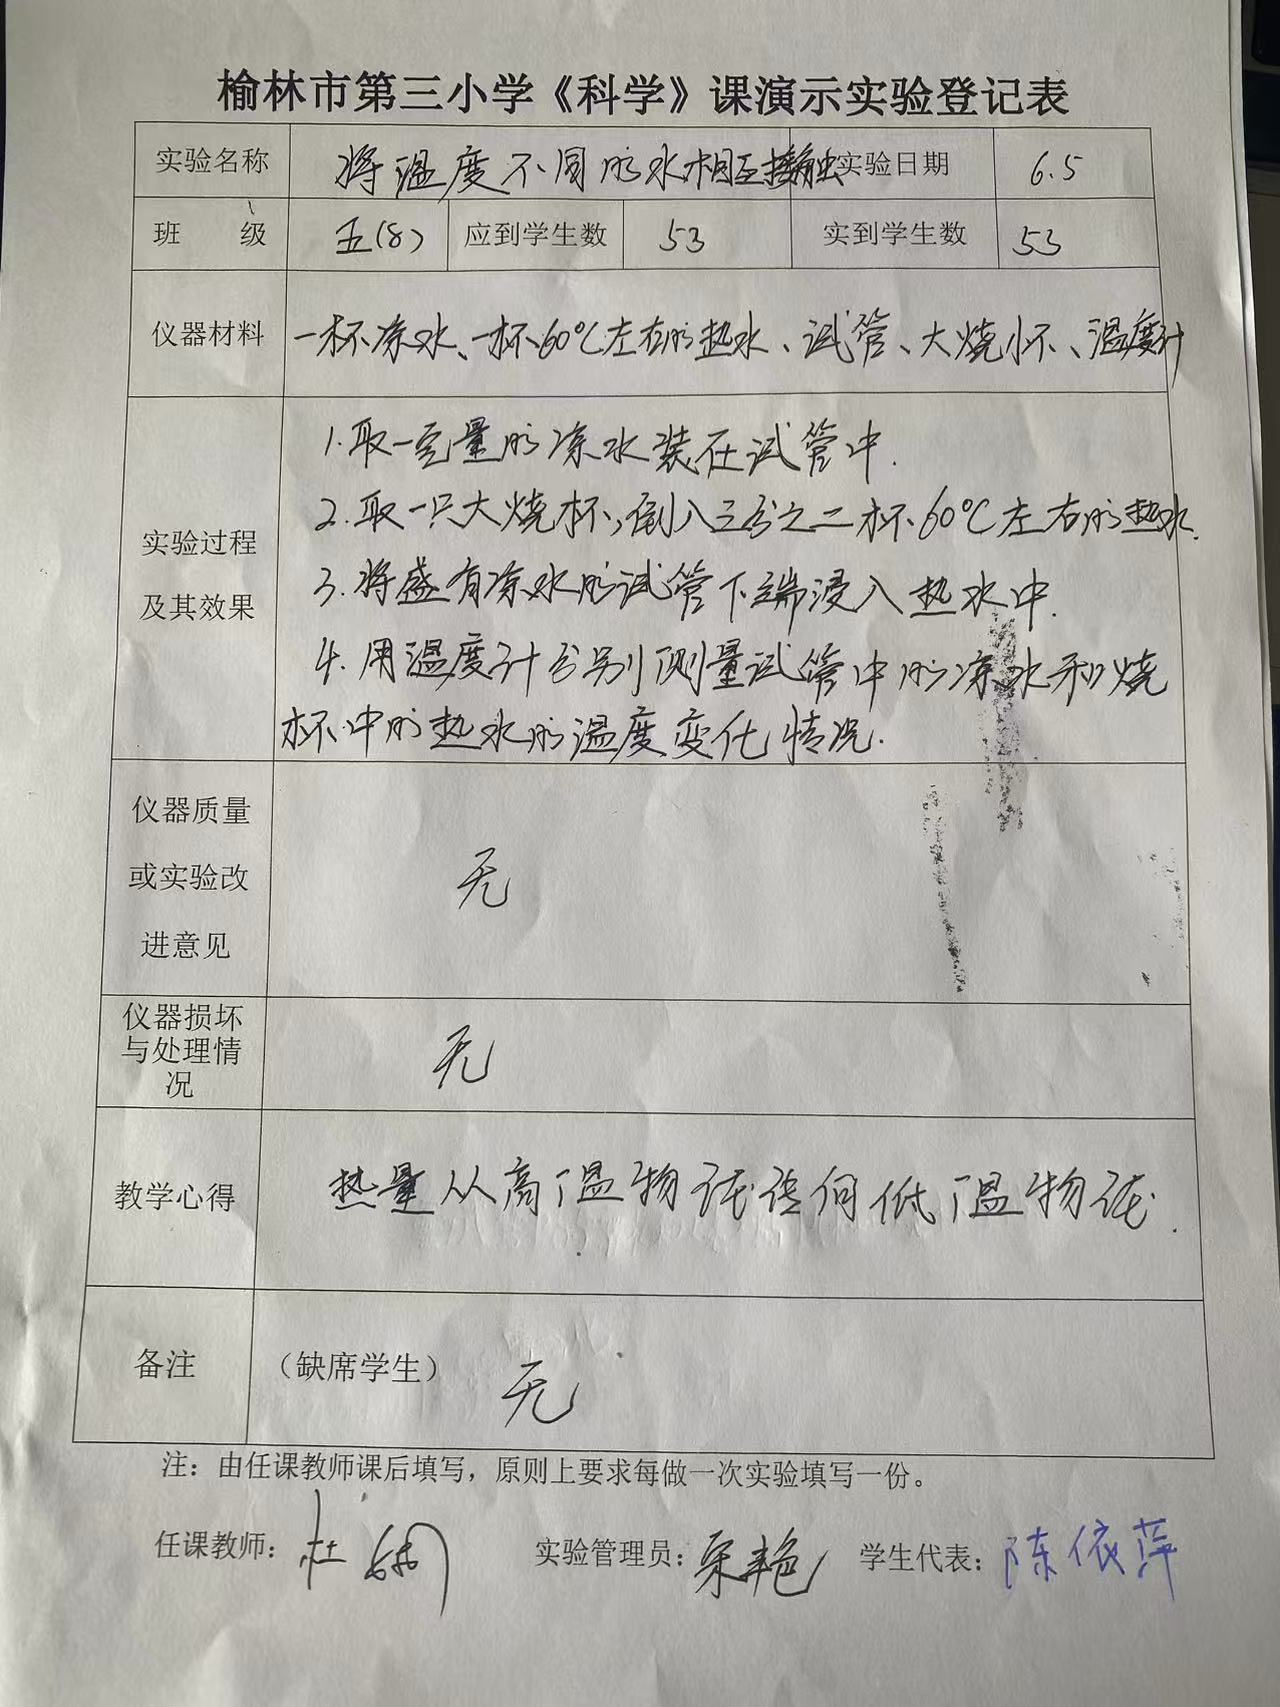 榆林市第三小学《科学》课演示实验登记表
实验名称 将温度不同的水相互接触 实验日期 6.5
班 级 五(8) 应到学生数 53 实到学生数 53
仪器材料 一杯凉水、一杯60℃左右的热水、试管、大烧杯、温度计
实验过程
及其效果
1.取一定量的凉水装在试管中.
2.取一只大烧杯,倒入三分之二杯60℃左右的热水.
3.将盛有凉水的试管下端浸入热水中.
4.用温度计分别测量试管中的凉水和烧
杯中的热水的温度变化情况.
仪器质量
或实验改
进意见
无
仪器损坏
与处理情
况
无
教学心得 热量从高温物体传向低温物体.
备注 (缺席学生) 无
注：由任课教师课后填写，原则上要求每做一次实验填写一份。
任课教师：杜 实验管理员：宋艳 学生代表：陈依萍